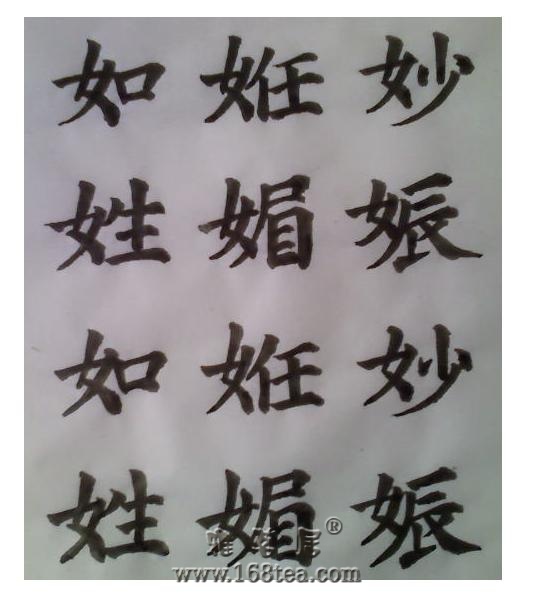 如 妊 妙
姓 媚 娠
如 妊 妙
姓 媚 娠
雅茶居®
www.168tea.com